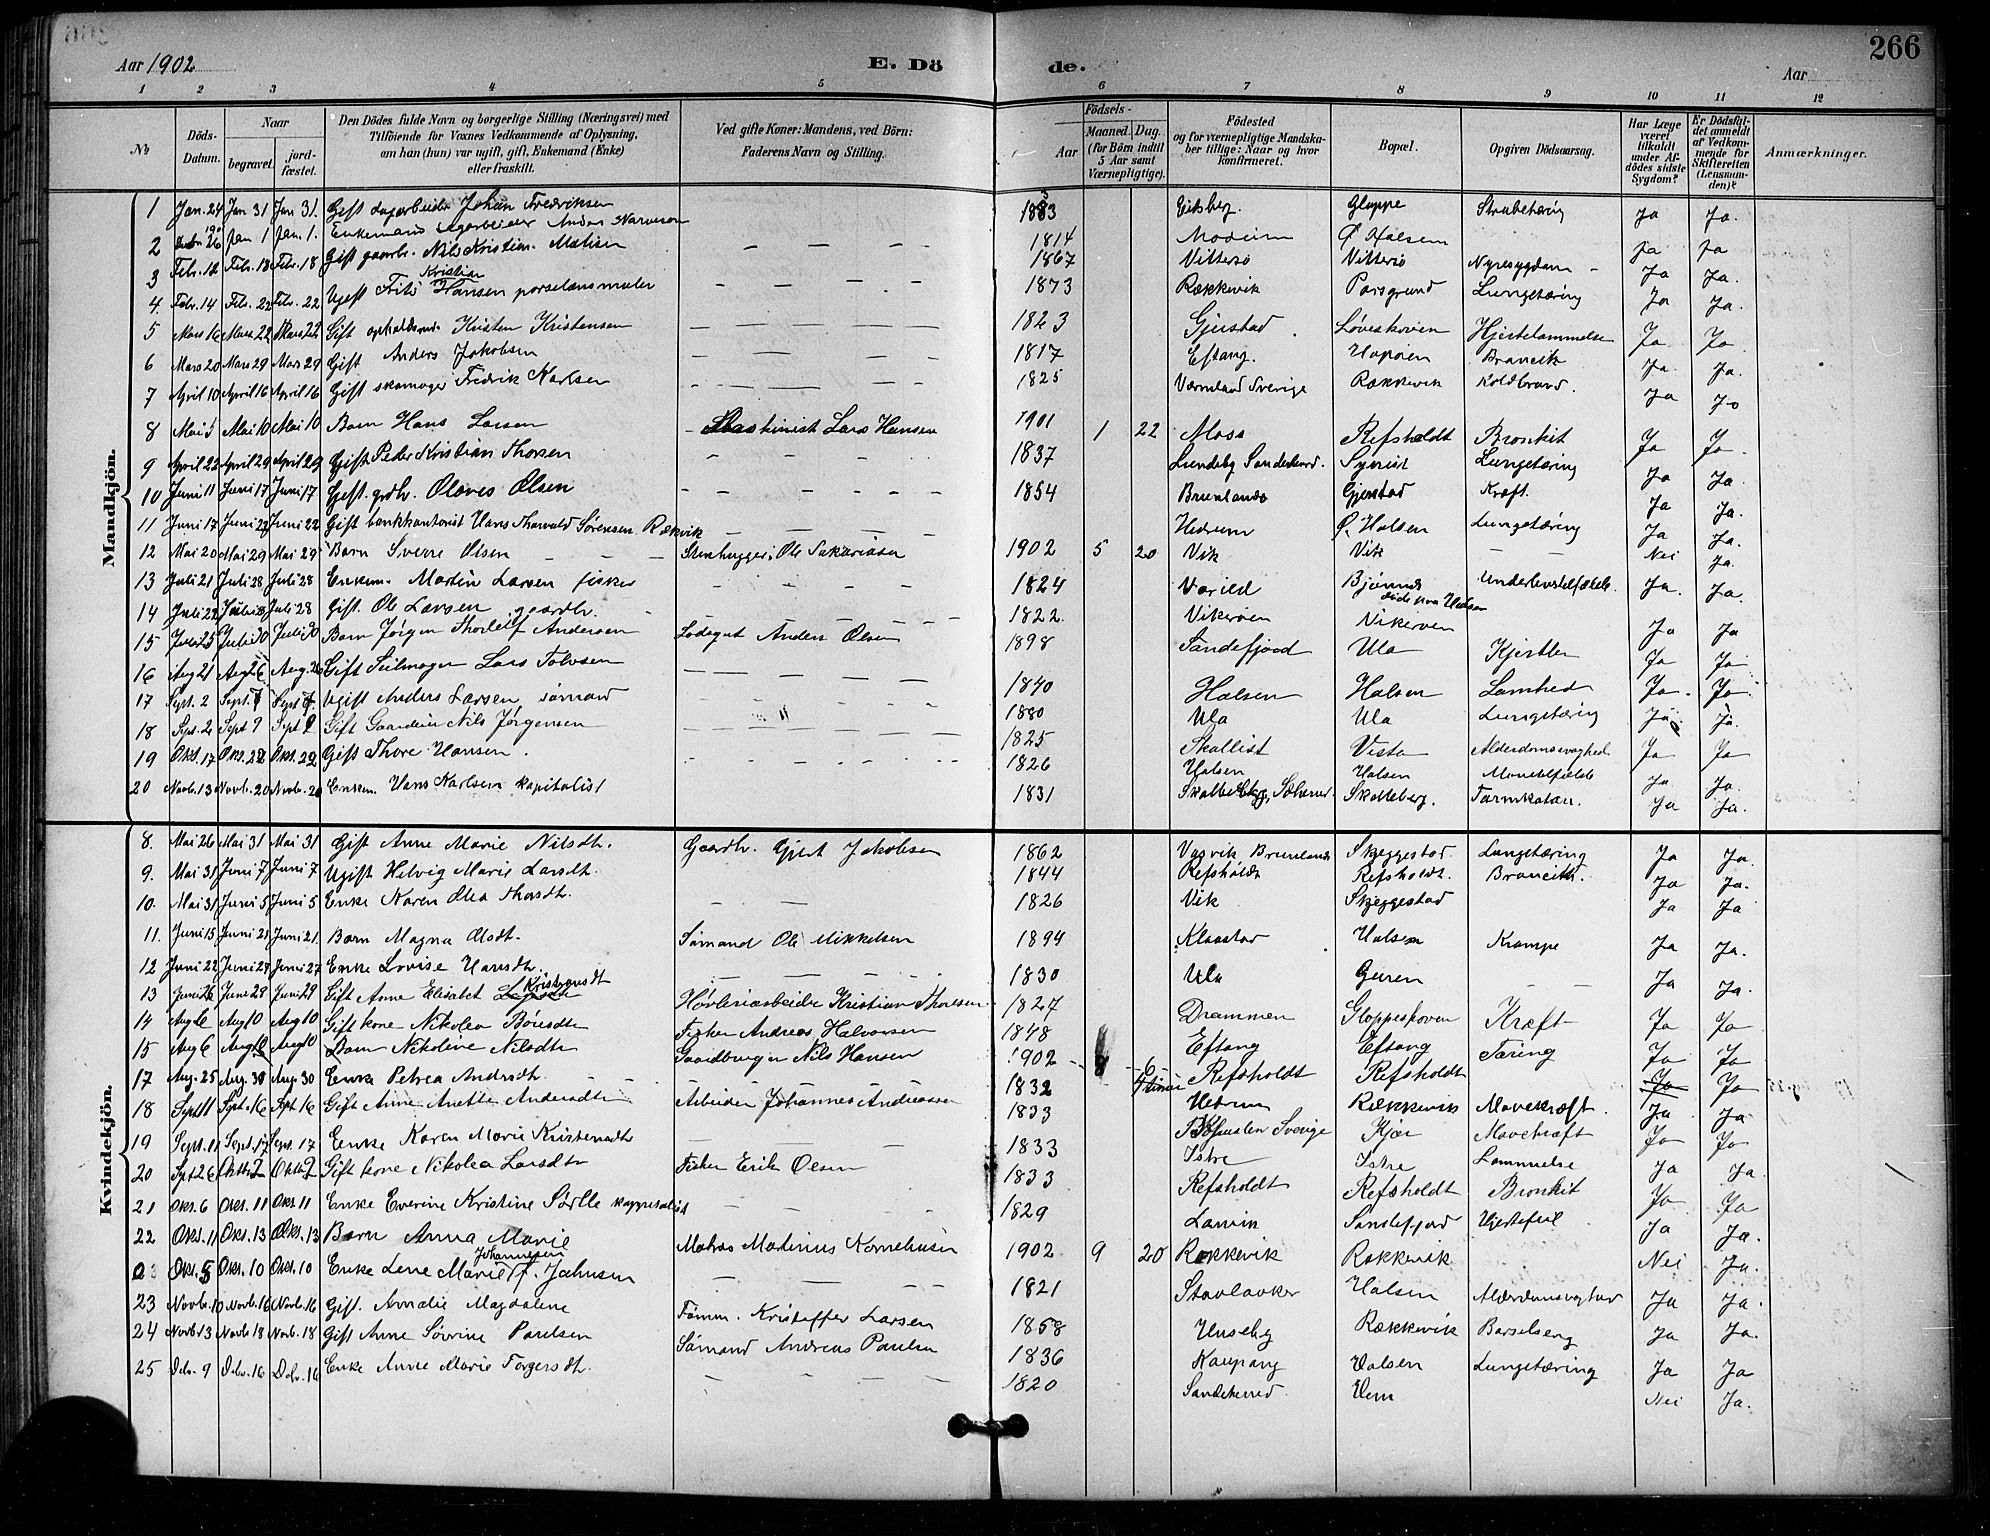 Aar 1902 E. Dö de. Aar 266
1 2 3 4 5 6 7 8 9 10 11 12
No. Döds-Datum. Naar begravet. jordfæstet. Den Dödes fulde Navn og borgerlige Stilling (Næringsvei) med Tilföiende for Voxnes Vedkommende af Oplysning, om han (hun) var ugift, gift, Enkemand (Enke) eller fraskilt. Ved gifte Koner: Mandens, ved Börn: Faderens Navn og Stilling. Födsels- Aar Maaned. Dag. (for Börn indtil 5 Aar samt Værnepligtige). Födested og for værnepligtige Mandskaber tillige: Naar og hvor konfirmeret. Bopæl. Opgiven Dödsaarsag. Har Læge været tilkaldt under Afdödes sidste Sygdom? Er Dödsfaldet anmeldt af Vedkommende for Skifteretten (Lensmanden)? Anmærkninger.
Mandkjön.
1 Jan. 24 Jan 31 Jan 31. Gift dagarbeider Johan Fredriksen 1883 Eidsberg. Gloppe Strubetæring Ja Ja.
2 26 Jan 1 Jan. 1. Enkemand Anders Narvesen 1814 Modum Ø Halsen Ja Ja
3 Febr. 12 Febr. 18 Febr. 18 Gift gaardbr. Nils Kristian Matisen 1867 Vittersø Vittersø Nyresygdom Ja Ja.
4. Febr. 14 Feb. 22 Febr. 22 Ugift Kristian Hansen porselænsmaler 1873 Rækkevik Porsgrund Lungetæring Ja Ja.
5 Mars 16 Mars 22 Mars 22 Gift Kristen Kristensen 1823 Gjerstad Løveskoven Hjertelammelse Ja Ja
6 Mars 20 Mars 29 Mars 29 Gift Anders Jakobsen 1817 Eftang. Ja Ja.
7 April 10 April 16 April 16 Gift skomager Fredrik Karlsen 1825 Værmland Sverige Rækkevik Koldbrand. Ja Ja
8 Mai 5 Mai 10 Mai 10 Barn Hans Larsen Maskinist Lars Hansen 1901 1 22 Moss Refsholdt Bronkit Ja Ja
9 April 22 April 29 April 29 Gift Peder Kristian Thorsen 1837 Lundeby Sandeherred. Lungetæring Ja Ja.
10 Juni 11 Juni 17 Juni 17 Gift. grdbr. Olaves Olsen 1854 Brunlanæs Gjerstad Kræft. Ja Ja.
11 Juni 17 Juni 22 Juni 22 Gift bankkantorist Hans Thorvald Sørensen Rækvik Hedrum Ø. Halsen Lungetæring Ja Ja.
12 Mai 20 Mai 29 Mai 29 Barn Sverre Olsen Stenhugger Ole Sakariasen 1902 5 20 Vik Vik Nei Ja.
13 Juli 21 Juli 28 Juli 28 Enkem. Martin Larsen fisker 1824 Varild Bjønnes Ja. Ja.
14 Juli 22 Juli 28 Juli 28 Gift. Ole Larsen gaardbr. 1822. Vikerøen Vikerøen Ja Ja
15 Juli 25 Juli 30 Juli 30 Barn Jørgen Thorleif Andersen Lodsgut Anders Olsen 1898 Sandefjord Ula Ja Ja
16 Aug 21 Aug 26 Aug. 26 Gift Seilmager Lars Tolvsen 1840 Halsen Halsen Lamhed Ja. Ja
17 Sept. 2 Sept. 7 Sept 7 Ugift Anders Larsen sømand 1880 Ula Ula Lungetæring Ja Ja.
18 Sept. 2 Sept 9 Sept 9 Gift Nils Jørgensen 1825 Skallist Vesta Alderdomssvaghed Ja Ja
19 Okt. 17 Okt. 22 Okt. 22 Gift Thore Hansen. 1826 Halsen Halsen Ja Ja.
20 Novbr. 13 Novbr. 20 Novbr. 20 Enkem. Hans Karlsen kapitalist 1831 Skalleberg. Tarmkatar. Ja Ja.
Kvindekjön.
8. Mai 26 Mai 31 Mai 31 Gift Anne Marie Nilsdtr. Gaardbr. Gjert Jakobsen 1862 Vasvik Brunlanæs Skjeggestad Lungetæring Ja Ja.
9. Mai 31 Juni 7 Juni 7 Ugift Helvig Marie Larsdtr. 1844 Refsholdt Refsholdt. Ja Ja.
10. Mai 31 Juni 5 Juni 5 Enke Karen Olea Thorsdtr. 1826 Vik Skjeggestad Ja Ja
11. Juni 15 Juni 21 Juni 21. Barn Magna Olsdtr. Sømand Ole Mikkelsen 1894 Klaastad Halsen Krampe Ja Ja.
12 Juni 22 Juni 27 Juni 27 Enke Lovise Hansdtr. 1830 Ula Guren Ja Ja.
13 Juni 26 Juni 28 Juni 29 Gift Anne Elisabet Kristensdtr Høvleriarbeider Kristian Thoresen 1827 Drammen Gloppeskoven Kræft Ja Ja
14 Aug 6 Aug 10 Aug 10 Gift kone Nikolea Børesdtr Fisker Andreas Halvorsen 1848 Eftang Eftang Tæring Ja Ja
15 Aug 6 Aug 10 Aug 10 Barn Nikoline Nilsdtr Gaardbruger Nils Hansen 1902 8 6 Refsholdt Refsholdt Ja Ja
17 Aug. 25 Aug. 30 Aug. 30 Enke Petrea Andrsdtr. 1832 Hedrum Rækkevik Mavekræft. Ja Ja
18 Sept 11 Sept. 16 Sept 16 Gift Anne Anette Andersdtr Arbeider Johannes Andreassen 1833 Sverige Kjær Mavekræft Ja Ja
19 Sept. 11 Sept. 17 Sept. 17 Enke Karen Marie Kristensdtr 1833 Istre Istre Lammelse Ja Ja.
20 Sept 26 Oktb 2 Oktb 2 Gift kone Nikolea Larsdtr Fisker Erik Olsen 1833 Refsholdt Refsholdt Bronkit Ja Ja
21 Okt. 6 Okt. 11 Okt. 11 Enke Everine Kristine Sørlle 1829 Larvik Sandefjord Hjertefeil Ja Ja.
22 Okt. 11 Okt. 13 Okt. 13 Barn Anna Marie Matros Matinius Korneliusen 1902 9 20 Rækkevik Rækkevik Nei Ja.
Okt. 5 Okt. 10 Okt. 10 Enke Lene Marie Johannesen f. Jahnsen 1821 Stavlaaker Halsen Ja Ja.
23 Novbr. 10 Novbr. 16 Novbr. 16 Gift. Amalie Magdalene Tømm. Kristoffer Larsen 1858 Huseby Rækkevik Barselseng Ja Ja.
24 Novbr. 13 Novbr. 18 Novbr. 18 Gift Anne Severine Paulsen Sømand Andreas Paulsen 1836 Kaupang Halsen Lungetæring Ja Ja
25 Debr. 9 Debr. 16 Debr. 16 Enke Anne Marie Torgersdtr. 1820 Sandeherred Hem Nei Ja.